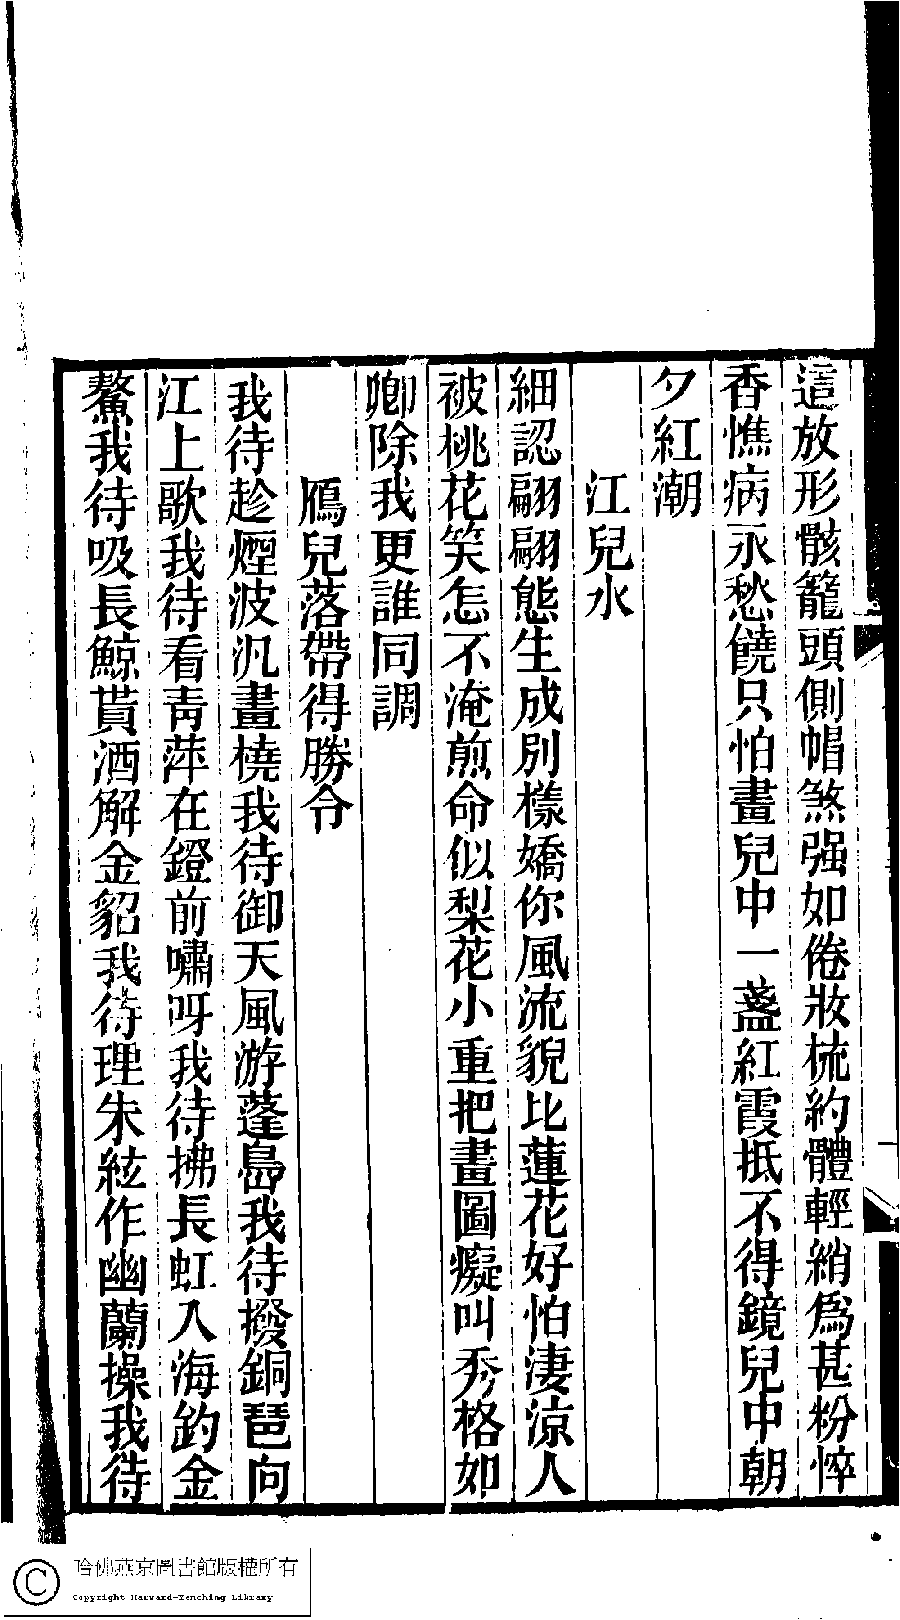 這放形骸籠頭側帽煞强如倦妝梳約體輕綃爲甚粉悴
香憔病永愁饒只怕畫兒中一盞紅霞抵不得鏡兒中朝
夕紅潮
江兒水
細認翩翩態生成別樣嬌你風流貌比蓮花好怕淒涼人
被桃花笑怎不淹煎命似梨花小重把畫圖癡叫秀格如
卿除我更誰同調
鴈兒落帶得勝令
我待趁煙波汎畫橈我待御天風游蓬島我待撥銅琶向
江上歌我待看青萍在鐙前嘯呀我待拂長虹入海釣金
鰲我待吸長鯨貰酒解金貂我待理朱絃作幽蘭操我待
哈佛燕京圖書館版權所有
Copyright Harvard-Yenching Library